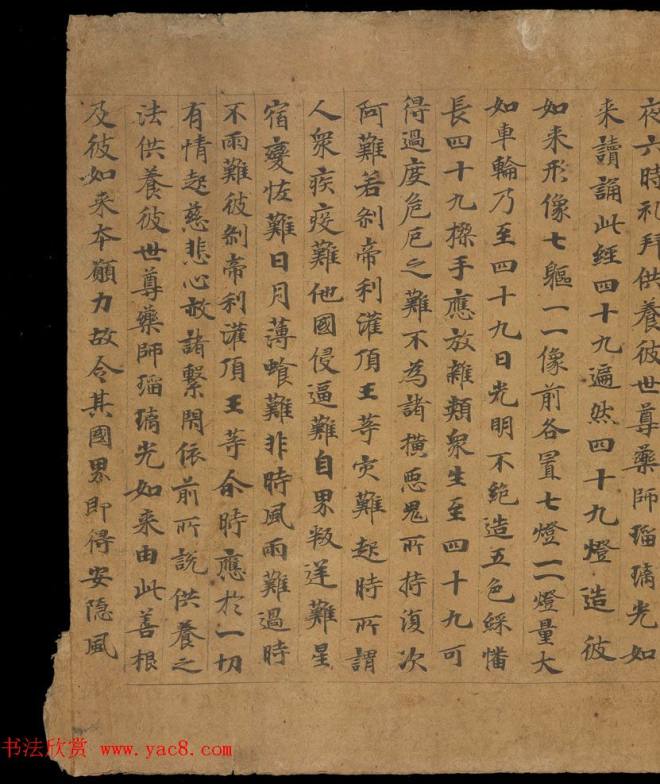 夜六時礼拜供養彼世尊藥師瑠璃光如
来讀誦此經四十九遍然四十九燈造彼
如来形像七軀一一像前各置七燈一一燈量大
如車輪乃至四十九日光明不絶造五色綵幡
長四十九搩手應放雜類衆生至四十九可
得過度危厄之難不為諸横惡鬼所持復次
阿難若剎帝利灌頂王等灾難起時所謂
人衆疾疫難他國侵逼難自界叛逆難星
宿變恠難日月薄蝕難非時風雨難過時
不雨難彼剎帝利灌頂王等尒時應於一切
有情起慈悲心赦諸繫閇依前所説供養之
法供養彼世尊藥師瑠璃光如来由此善根
及彼如来本願力故令其國界即得安隠風
书法欣赏 www.yac8.com